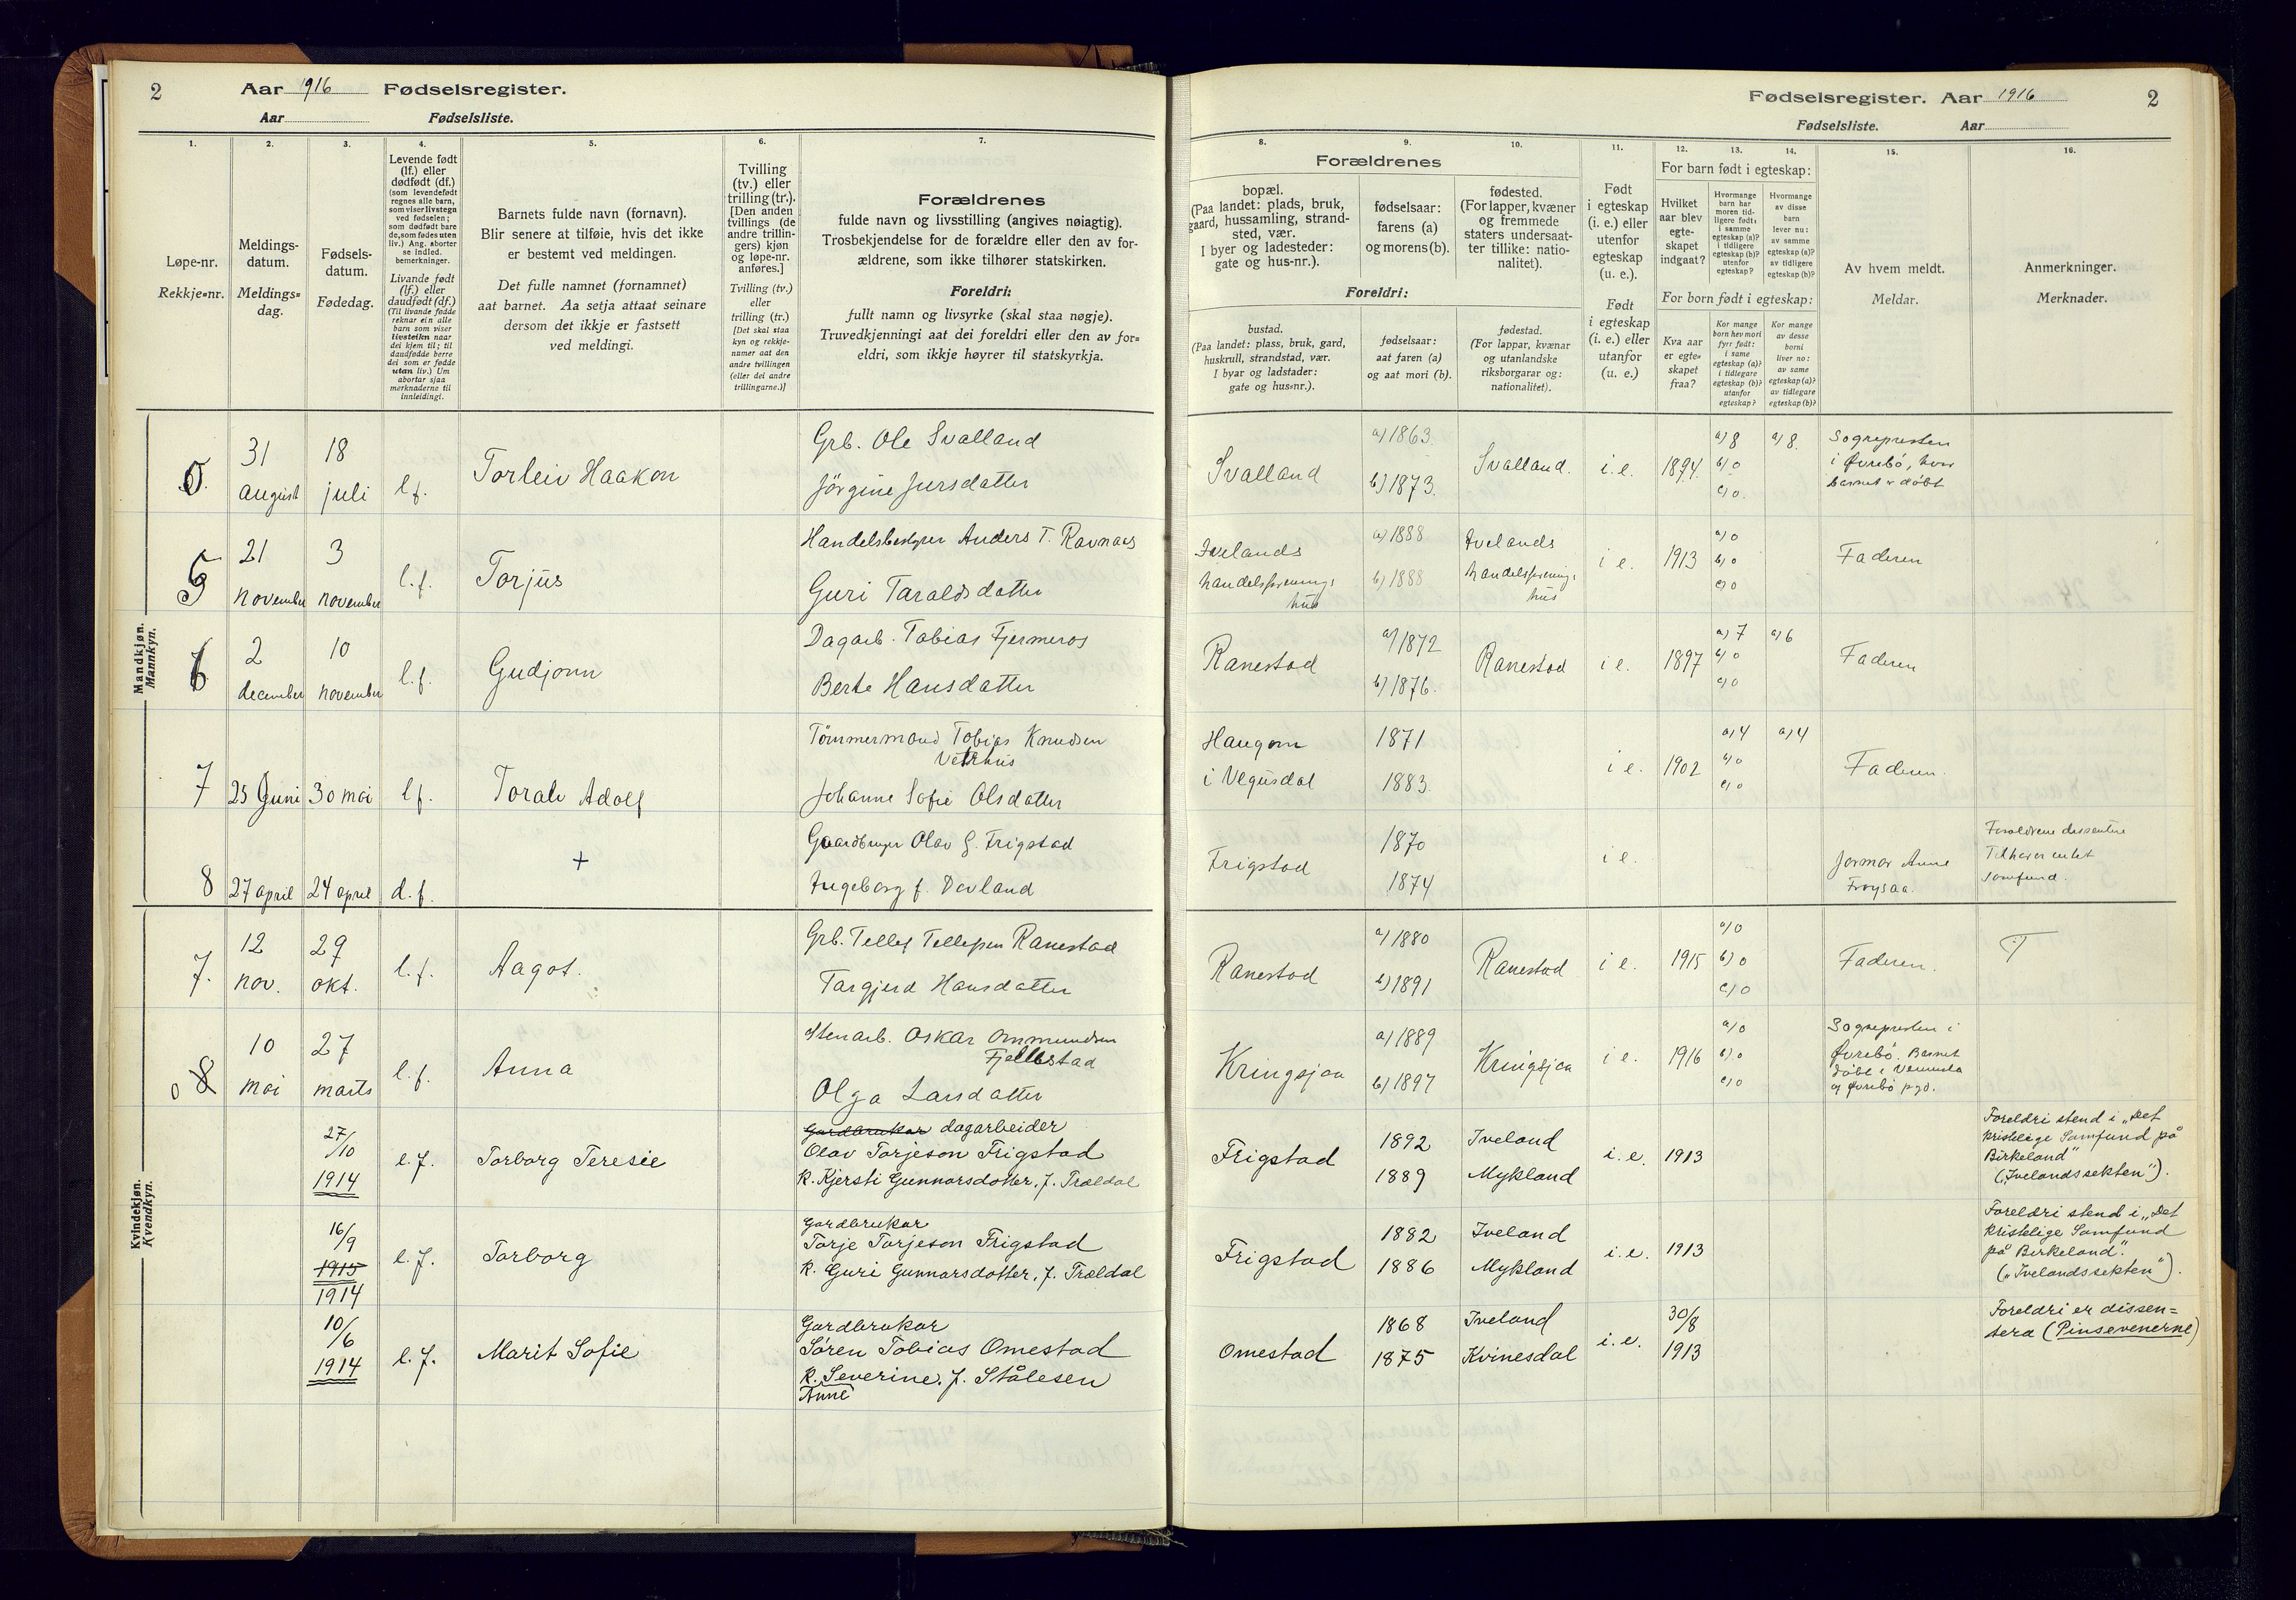 2
Aar 1916 Fødselsregister.
Aar Fødselsliste.
1.
Løpe-nr.
Rekkje-nr.
2.
Meldings-
datum.
Meldings-
dag.
3.
Fødsels-
datum.
Fødedag.
4.
Levende født
(lf.) eller
dødfødt (df.)
(som levendefødt
regnes alle barn,
som viser livstegn
ved fødselen;
som dødfødt bare
de, som fødes uten
liv.) Ang. aborter
se indled.
bemerkninger.
Livande født
(lf.) eller
daudfødt (df.)
(Til livande fødde
reknar ein alle
barn som viser
livsteikn naar
dei kjem til; til
daudfødde berre
dei som er fødde
utan liv.) Um
abortar sjaa
merknaderne til
innleidingi.
5.
Barnets fulde navn (fornavn).
Blir senere at tilføie, hvis det ikke
er bestemt ved meldingen.
Det fulle namnet (fornamnet)
aat barnet. Aa setja attaat seinare
dersom det ikkje er fastsett
ved meldingi.
6.
Tvilling
(tv.) eller
trilling (tr.).
[Den anden
tvillings (de
andre trillin-
gers) kjøn
og løpe-nr.
anføres.]
Tvilling (tv.)
eller
trilling (tr.)
[Det skal staa
kyn og rekkje-
numer aat den
andre tvillingen
(eller dei andre
trillingarne.)]
7.
Forældrenes
fulde navn og livsstilling (angives nøiagtig).
Trosbekjendelse for de forældre eller den av for-
ældrene, som ikke tilhører statskirken.
Foreldri:
fullt namn og livsyrke (skal staa nøgje).
Truvedkjenningi aat dei foreldri eller den av for-
eldri, som ikkje høyrer til statskyrkja.
Fødselsregister. Aar 1916
2
Fødselsliste. Aar
8.
Forældrenes
bopæl.
(Paa landet: plads, bruk,
gaard, hussamling, strand-
sted, vær.
I byer og ladesteder:
gate og hus-nr.).
Foreldri:
bustad.
(Paa landet: plass, bruk, gard,
huskrull, strandstad, vær.
I byar og ladstader:
gate og hus-nr.).
9.
fødselsaar:
farens (a)
og morens (b).
fødselsaar:
aat faren (a)
og aat mori (b).
10.
fødested.
(For lapper, kvæner
og fremmede
staters undersaat-
ter tillike: natio-
nalitet).
fødestad.
(For lappar, kvænar
og utanlandske
riksborgarar og:
nationalitet).
11.
Født
i egteskap
(i. e.) eller
utenfor
egteskap
(u. e.).
Født
i egteskap
(i. e.) eller
utanfor
(u. e.)
For barn født i egteskap:
12.
Hvilket
aar blev
egte-
skapet
indgaat?
For born født i egteskap:
Kva aar
er egte-
skapet
fraa?
13.
Hvormange
barn har
moren tid-
ligere født:
i samme
egteskap (a)?
i tidligere
egteskap (b)?
utenfor
egteskap?
Kor mange
born hev mori
fyrr født:
i same
egteskap (a)?
i tidlegare
egteskap (b)?
utanfor
egteskap?
14.
Hvormange
av disse
barn
lever nu:
av samme
egteskap (a)?
av tidligere
egteskap (b)?
Kor mange
av desse
borni
liver no:
av same
egteskap (a)?
av tidlegare
egteskap (b)?
15.
Av hvem meldt.
Meldar.
16.
Anmerkninger.
Merknader.
Mandkjøn.
Mannkyn.
31 18
august juli l.f. Torleiv Haakon
Grb. Ole Svalland
Jörgine Jursdatter
Svalland a) 1863. b) 1873. Svalland. i.e. 1894. a) 8 b) 0 c) 0. a) 8.
Sognepresten
i Øvrebö, hvor
barnet er döbt
5 21 3
november november l.f. Torjus
Handelsbestyrer Anders T. Ravnaas
Guri Taraldsdatter
Ivelands
handelsforenings
hus
a) 1888 b) 1888
Ivelands
handelsforenings
hus
i e. 1913 a) 0 b) 0 c) 0 Faderen
6 2 10
december november l.f. Gudjonn
Dagarb. Tobias Fjermeros
Berte Hansdatter
Ranestad a) 1872 b) 1876. Ranestad i e. 1897 a) 7 b) 0 c) 0 a) 6 Faderen
7 25 Juni 30 mai l.f. Toralv Adolf
Tömmermand Tobias Knudsen
Vetrhus
Johanne Sofie Olsdatter
Haugom
i Vegusdal
1871 1883. i e. 1902 a) 4 b) 0 c) 0 a) 4 Faderen.
8 27 april 24 april d.f. +
Gaardbruger Olav G. Frigstad
Ingeborg f. Dovland
Frigstad 1870 1874 i e.
Jormor Anne
Frøysaa.
Foraldrene dissentere
Tilhører intet
samfund.
Kvindekjøn.
Kvendkyn.
7. 12 29
nov. okt. l.f. Aagot.
Grb. Tellef Tellefsen Ranestad
Targjerd Hansdatter
Ranestad a) 1880 b) 1891 Ranestad i e. 1915 a) 0 b) 0 c) 0 Faderen.
8 10 27
mai marts l.f. Anna
Stenarb. Oskar Ommundsen
Fjellestad
Olga Larsdatter
Kringsjaa a) 1889 b) 1897 Kringsjaa i e. 1916 a) 0 b) 0 c) 0
Sognepresten i
Øvrebö. Barnet
döbt i Vennesla
og Øvrebö pgd.
27/10
1914 l.f. Torborg Teresie
Gardbrukar dagarbeider
Olav Torjeson Frigstad
k. Kjersti Gunnarsdotter, f. Trældal
Frigstad 1892 1889 Iveland Mykland i.e. 1913
Foreldri stend i „Det
kristelige Samfund på
Birkeland"
(„Ivelandssekten").
16/9
1915
1914 l.f. Torborg
Gardbrukar
Torje Torjeson Frigstad
k. Guri Gunnarsdotter, f. Trældal
Frigstad 1882 1886 Iveland Mykland i.e. 1913
Foreldri stend i „Det
kristelige Samfund
på Birkeland".
(„Ivelandssekten").
10/6
1914 l.f. Marit Sofie
Gardbrukar
Søren Tobias Omestad
k. Severine, f. Stålesen
Anne
Omestad 1868 1875 Iveland Kvinesdal i.e. 30/8
1913
Foreldri er dissen=
tera (Pinsevenerne)